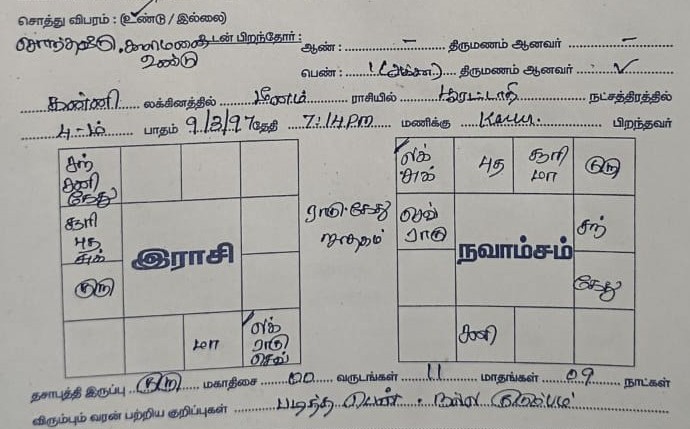 சொத்து விபரம் : (உண்டு / இல்லை)
சொந்தவீடு, காலிமனை உடன் பிறந்தோர் : ஆண் : – திருமணம் ஆனவர் –
உண்டு
பெண் : 1 (அக்கா) திருமணம் ஆனவர் ✓
கன்னி லக்கினத்தில் மீனம் ராசியில் உரட்டாதி நட்சத்திரத்தில்
4-ம் பாதம் 9/3/97 தேதி 7:14 PM மணிக்கு பிறந்தவர்
சந் சனி கேது
சூரி புத சுக்
குரு
இராசி
மா
லக் ராகு செவ்
ராகு கேது ஜாதகம்
லக் சுக்
புத
சூரி மா
குரு
செவ் ராகு
நவாம்சம்
சந்
கேது
சனி
தசாபுத்தி இருப்பு குரு மகாதிசை 00 வருடங்கள் 11 மாதங்கள் 09 நாட்கள்
விரும்பும் வரன் பற்றிய குறிப்புகள் படித்த பெண், நல்ல குடும்பம்